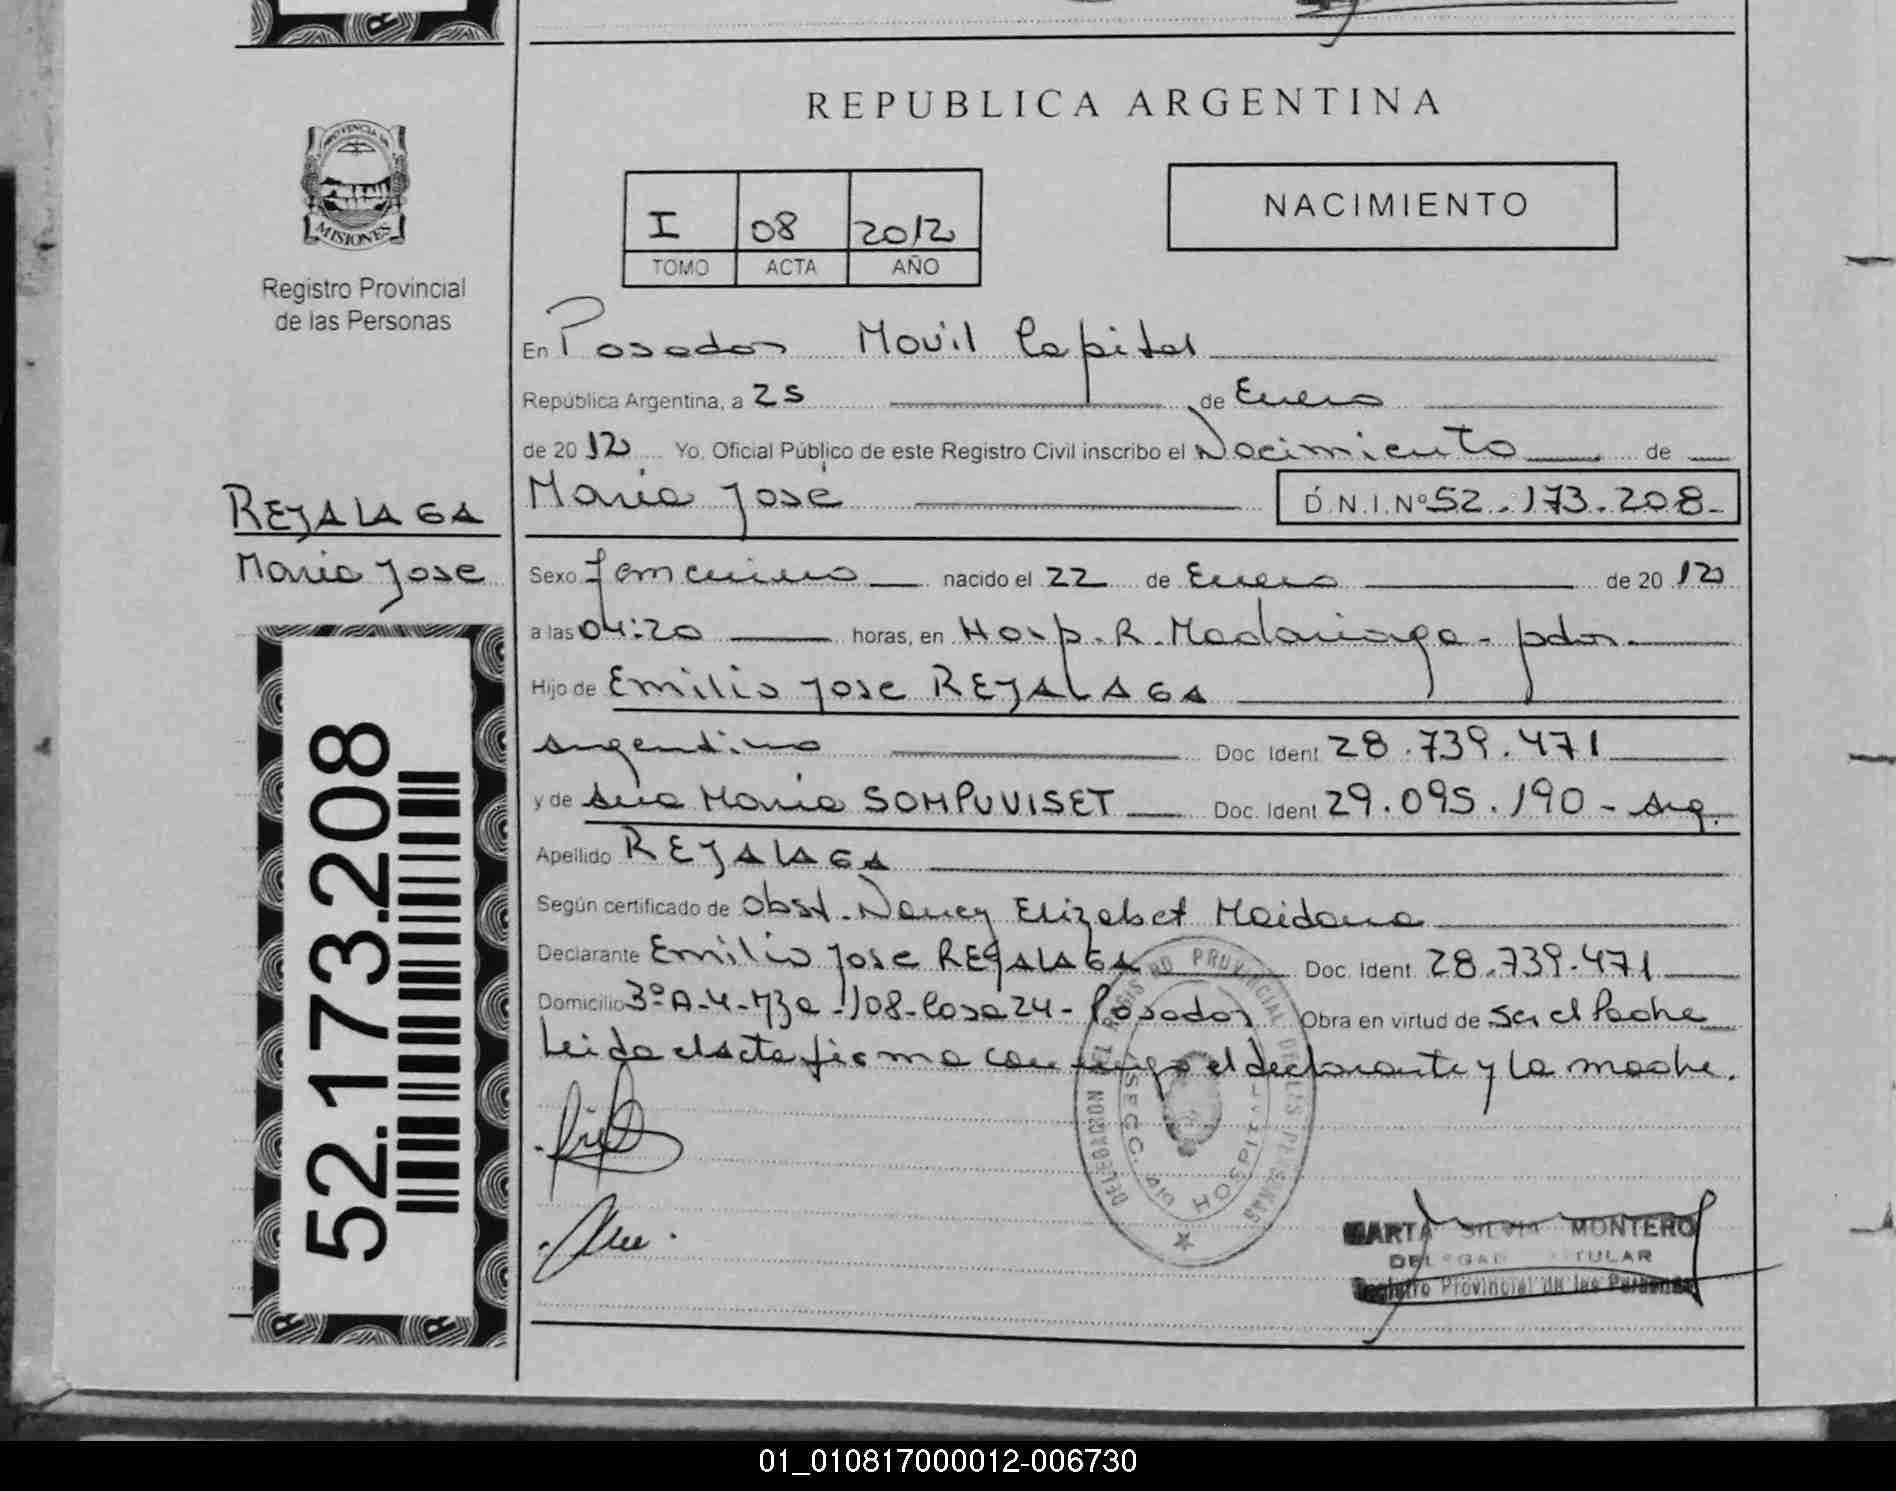 REPUBLICA ARGENTINA
PROVINCIA DE
MISIONES
Registro Provincial
de las Personas
I 08 2012
TOMO ACTA AÑO
NACIMIENTO
En Posadas Movil Capital
República Argentina, a 25 de Enero
de 2012 Yo, Oficial Público de este Registro Civil inscribo el Nacimiento de
REJALAGA
Maria Jose
Maria José D.N.I. Nº 52.173.208.-
Sexo femenino nacido el 22 de Enero de 2012
a las 04:20 horas, en Hosp. R. Madariaga - pdas.
Hijo de Emilio Jose REJALAGA
argentino Doc. Ident 28.739.471
y de Ana Maria SOMPUVISET Doc. Ident 29.095.190 - Arg.
Apellido REJALAGA
Según certificado de Obst. Nancy Elizabet Maidana
Declarante Emilio Jose REJALAGA Doc. Ident. 28.739.471
Domicilio 3º A-4- 108-Casa 24- Posadas Obra en virtud de ser el Padre
Leida el acta firma conmigo el declarante y la madre.
52.173.208
DELEGACION DEL REGISTRO PROVINCIAL DE LAS PERSONAS
SECC. HOSPITAL
MARTA SILVIA MONTERO
DELEGADA TITULAR
Registro Provincial de las Personas
01_010817000012-006730